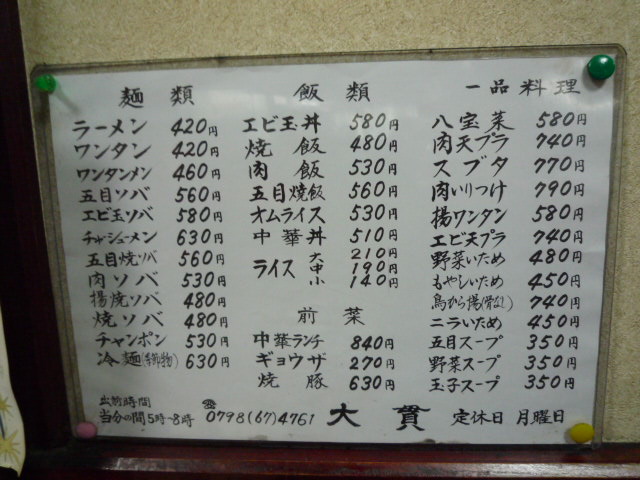 麺類
ラーメン 420円
ワンタン 420円
ワンタンメン 460円
五目ソバ 560円
エビ玉ソバ 580円
チャーシューメン 630円
五目焼ソバ 560円
肉ソバ 530円
揚焼ソバ 480円
焼ソバ 480円
チャンポン 530円
冷麺(季節物) 630円
飯類
エビ玉丼 580円
焼飯 480円
肉飯 530円
五目焼飯 560円
オムライス 530円
中華丼 510円
ライス 大 210円
中 190円
小 140円
前菜
中華ランチ 840円
ギョウザ 270円
焼豚 630円
一品料理
八宝菜 580円
肉天プラ 740円
スブタ 770円
肉いりつけ 790円
揚ワンタン 580円
エビ天プラ 740円
野菜いため 480円
もやしいため 450円
鳥から揚(骨なし) 740円
ニラいため 450円
五目スープ 350円
野菜スープ 350円
玉子スープ 350円
出前時間
当分の間5時~8時 ☎0798(67)4761 大貫 定休日 月曜日